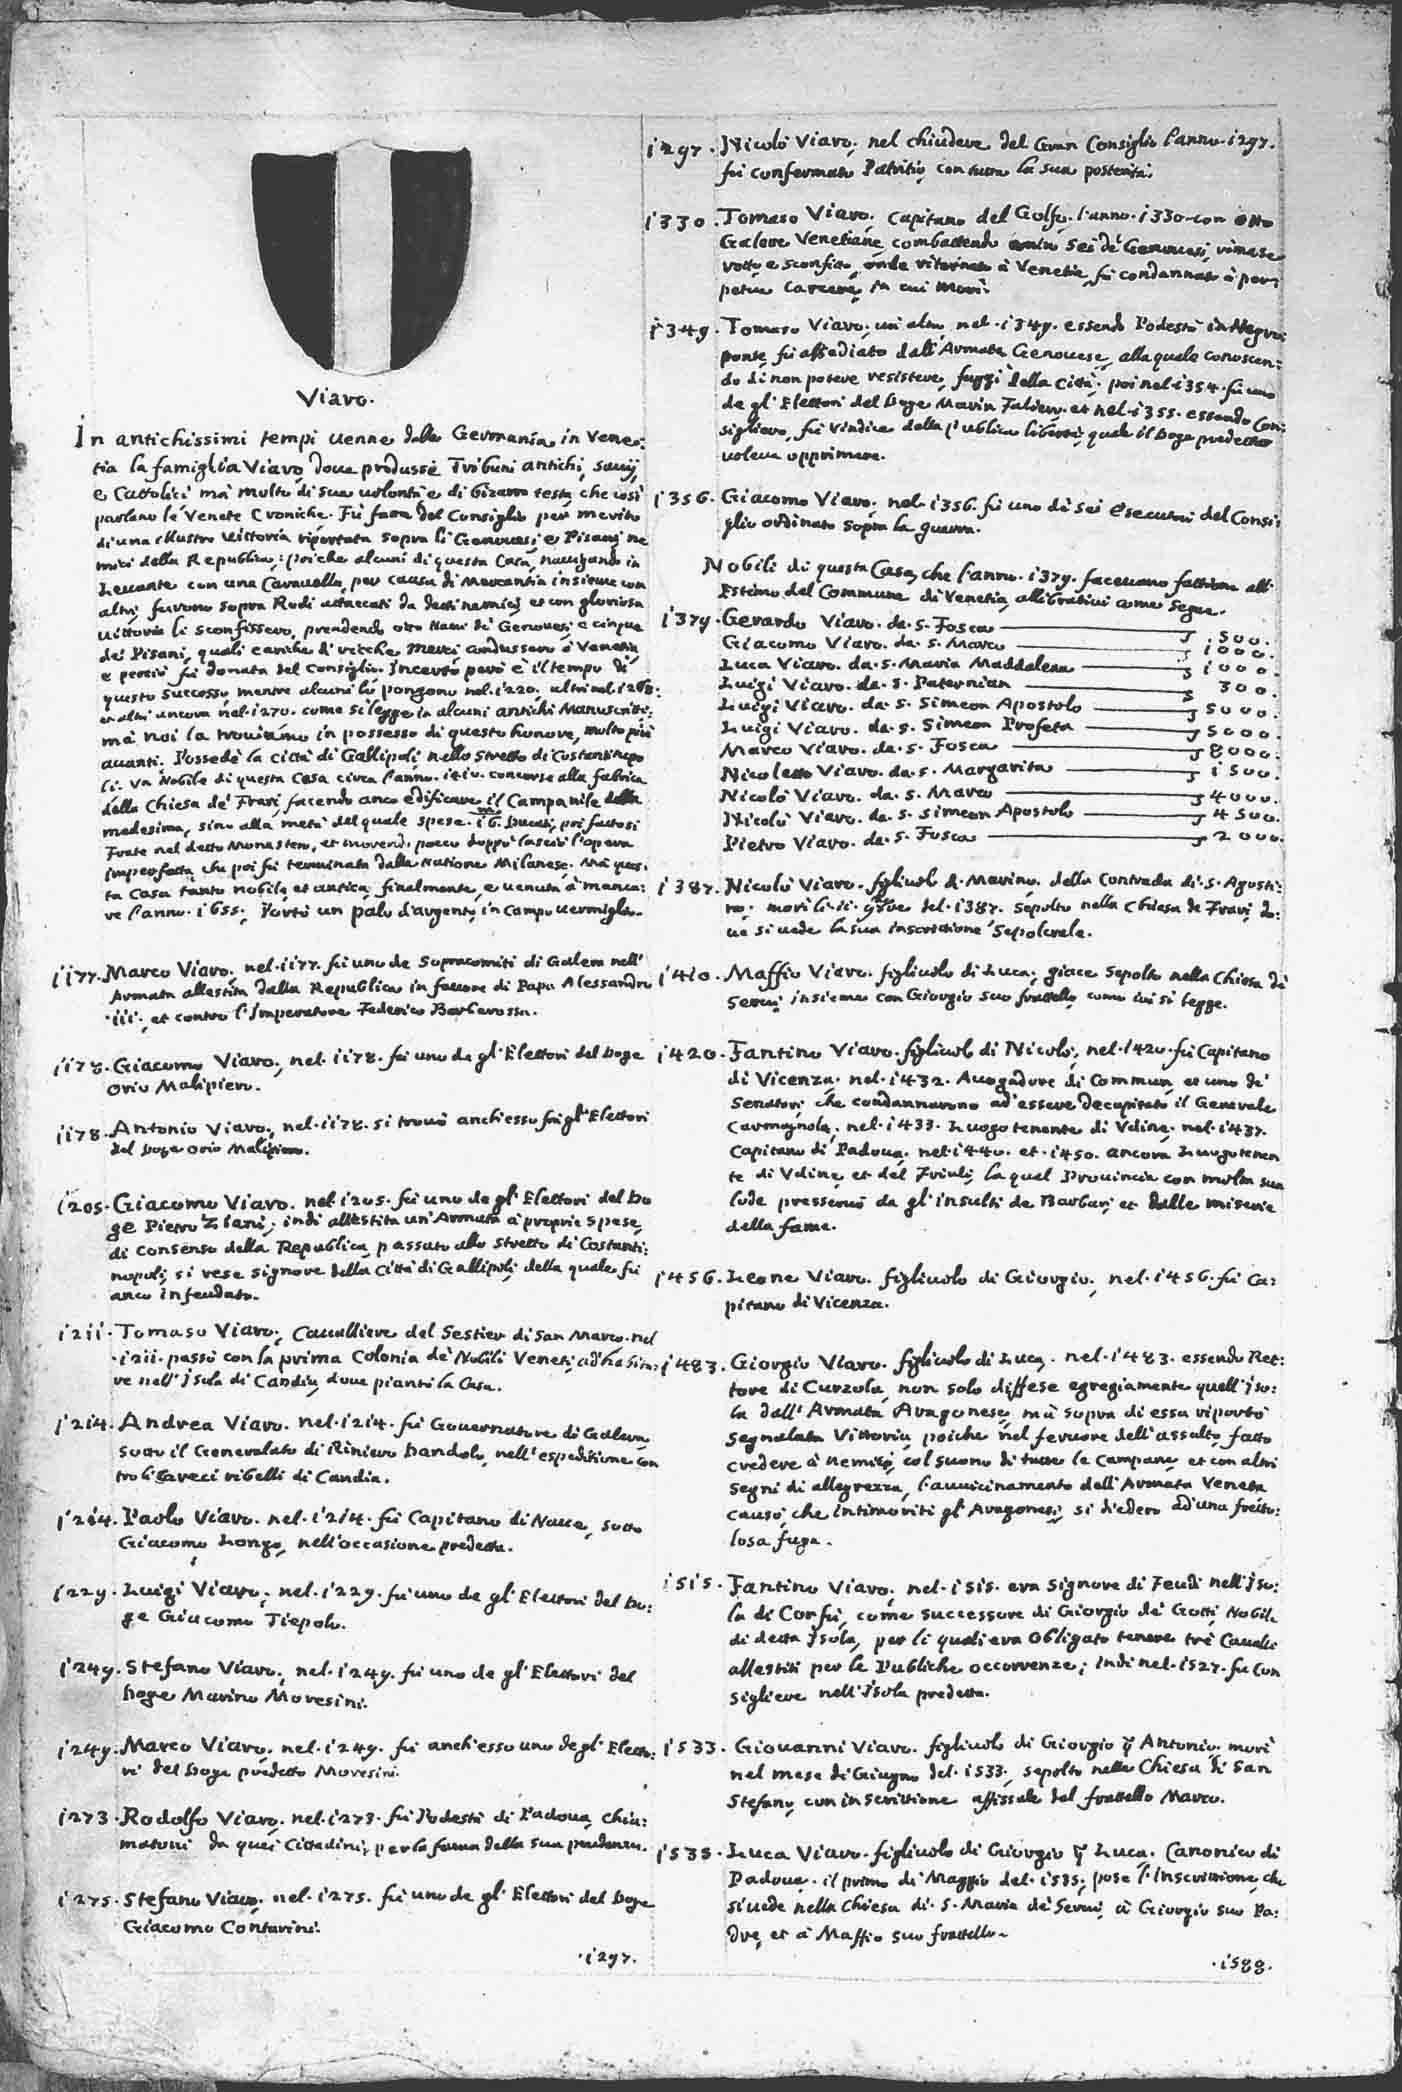 Viaro.
In antichissimi tempi uenne dalla Germania in Vene:
tia la famiglia Viaro, doue produsse Tribuni antichi, sauij,
e Cattolici mà molto di sua uolontà e di bizarra testa, che così
parlano le Venete Croniche. Fù fatta del Consiglio per merito
di una illustre uittoria riportata sopra li Genouesi, e Pisani ne
mici della Republica; poiche alcuni di questa Casa, nauigando in
Leuante con una Carauella, per causa di Mercantia insieme con
altri, furono sopra Rodi attaccati da detti nemici, et con gloriosa
uittoria li sconfissero, prendendo otto Naui de Genouesi, e cinque
de' Pisani, quali cariche di ricche merci condussero à Venetia,
e perciò fù donata del Consiglio. Incerto però è il tempo di
questo successo, mentre alcuni lo pongono nel. 1220. altri nel. 1268.
et altri ancora nel. 1270. come si legge in alcuni antichi Manuscritti;
mà noi la trouiamo in possesso di questo honore, molto più
auanti. Possedè la città di Gallipoli, nello Stretto di Costantinopo
li. Un Nobile di questa Casa circa l'anno. 1410. concorse alla fabrica
della Chiesa de' Frari, facendo anco edificare il Campanile della
medesima, sino alla metà del quale spese. 16.m Ducati, poi fattosi
Frate nel detto Monastero, et morendo pocco doppò lasciò l'opera
imperfetta, che poi fù terminata dalla Natione Milanese. Mà ques:
ta Casa tanto nobile, et antica, finalmente, e uenuta à manca:
re l'anno. 1655. Portò un palo d'argento, in campo uermiglio.
1177. Marco Viaro, nel. 1177. fù uno de Sopracomiti di Galera nell'
Armata allestita dalla Republica in fauore di Papa Alessandro
.III. et contro l'Imperatore Federico Barbarossa.
1178. Giacomo Viaro, nel. 1178. fù uno de gl'Elettori del Doge
Orio Malipiero.
1178. Antonio Viaro, nel. 1178. si trouò anch'esso frà gl'Elettori
del Doge Orio Malipiero.
1205. Giacomo Viaro. nel. 1205. fù uno de gl'Elettori del Do
ge Pietro Ziani; indi allestita un'Armata à proprie spese,
di consenso della Republica, passato allo Stretto di Costanti:
nopoli, si rese signore della Città di Gallipoli, della quale fù
anco infeudato.
1211. Tomaso Viaro, Caualliere del Sestier di San Marco. nel
.1211. passò con la prima Colonia de' Nobili Veneti, ad habita:
re nell'Isola di Candia, doue piantò la Casa.
1214. Andrea Viaro. nel. 1214. fù Gouernatore di Galera,
sotto il Generalato di Riniero Dandolo, nell'espeditione con
tro li Greci ribelli di Candia.
1214. Paolo Viaro. nel. 1214. fù Capitano di Naue, sotto
Giacomo Longo, nell'occasione predetta.
1229. Luigi Viaro, nel. 1229. fù uno de gl'Elettori del Do:
ge Giacomo Tiepolo.
1249. Stefano Viaro, nel. 1249. fù uno de gl'Elettori del
Doge Marino Moresini.
1249. Marco Viaro, nel. 1249. fù anch'esso uno de gl'Eletto:
ri del Doge predetto Moresini.
1273. Rodolfo Viaro, nel. 1273. fù Podestà di Padoua, chia:
matoui da quei Cittadini, per la fama della sua prudenza.
1275. Stefano Viaro, nel. 1275. fù uno de gl'Elettori del Doge
Giacomo Contarini.
.1297.
1297. Nicolò Viaro, nel chiudere del Gran Consiglio l'anno. 1297.
fù confermato Patritio, con tutta la sua posterità.
1330. Tomaso Viaro. Capitano del Golfo. l'anno. 1330. con otto
Galere Venetiane, combattendo contro sei de' Genouesi, rimase
rotto e sconfitto, onde ritornato à Venetia, fù condannato à per:
petua carcere, in cui morì.
1349. Tomaso Viaro, un altro, nel. 1349. essendo Podestà in Negro:
ponte, fù assediato dall'Armata Genouese, alla quale conoscen:
do di non potere resistere, fuggì della Città; poi nel. 1354. fù uno
de gl'Elettori del Doge Marin Faliero. et nel. 1355. essendo Con:
sigliero, fù uindice della publica libertà, quale il Doge predetto
uoleua opprimere.
1356. Giacomo Viaro, nel. 1356. fù uno di sei Esecutori del Consi:
glio ordinato sopra la guerra.
Nobili di questa Casa, che l'anno. 1379. faceuano fattione all'
Estimo del Commune di Venetia, allibrati ui come segue.
1379. Gerardo Viaro. da. S. Fosca 500.
Giacomo Viaro. da. S. Marco 1000.
Luca Viaro. da. S. Maria Maddalena 1000.
Luigi Viaro. da. S. Paternian 300.
Luigi Viaro. da. S. Simeon Apostolo 5000.
Luigi Viaro. da. S. Simeon Profeta 5000.
Marco Viaro. da. S. Fosca 8000.
Nicoletto Viaro. da. S. Margarita 1500.
Nicolò Viaro. da. S. Marco 4000.
Nicolò Viaro. da. S. Simeon Apostolo 4500.
Pietro Viaro. da. S. Fosca 2000.
1387. Nicolò Viaro. figliuolo di Marino, della Contrada di. S. Agosti:
no; morì li. 11. 9bre del. 1387. sepolto nella Chiesa de Frari, do:
ue si uede la sua inscrittione Sepolcrale.
1410. Maffio Viaro. figliuolo di Luca, giace sepolto nella Chiesa de
Serui, insieme con Giorgio suo frattello, come iui si legge.
1420. Fantino Viaro. figliuolo di Nicolò, nel. 1420. fù Capitano
di Vicenza. nel. 1432. Auogadore di Commun, et uno de'
Senatori, che condannarono ad essere decapitato il Generale
Carmagnola. nel. 1433. Luogotenente di Vdine. nel. 1437.
Capitano di Padoua. nel. 1440. et. 1450. ancora Luogotenen
te di Vdine, et del Friuli, la qual Prouincia con molta sua
lode preseruò da gl'insulti de Barbari, et dalle miserie
della fame.
1456. Leone Viaro. figliuolo di Giorgio, nel. 1456. fù Ca:
pitano di Vicenza.
1483. Giorgio Viaro. figliuolo di Luca. nel. 1483. essendo Ret:
tore di Curzola, non solo diffese egregiamente quell'Iso:
la dall'Armata Aragonese, mà sopra di essa riportò
segnalata Vittoria, poiche nel feruore dell'assalto, fatto
credere à nemici, col suono di tutte le campane, et con altri
segni di allegrezza, l'auuicinamento dell'Armata Veneta
causò, che intimoriti gl'Aragonesi, si diedero ad una fretto:
losa fuga.
1515. Fantino Viaro, nel. 1515. era signore di Feudi nell'Iso:
la di Corfù, come successore di Giorgio de' Gotti, Nobile
di detta Isola, per li quali era obligato tenere trè Caualli
allestiti per le Publiche occorrenze; indi nel. 1527. fù Con
sigliere nell'Isola predetta.
1533. Giouanni Viaro. figliuolo di Giorgio q. Antonio, morì
nel mese di Giugno del. 1533. sepolto nella Chiesa di San
Stefano, con inscrittione affissale dal frattello Marco.
1535. Luca Viaro. figliuolo di Giorgio q. Luca. Canonico di
Padoua. il primo di Maggio del. 1535. pose l'Inscrittione, che
si uede nella Chiesa di. S. Maria de' Serui, à Giorgio suo Pa:
dre, et à Maffio suo frattello.
.1588.